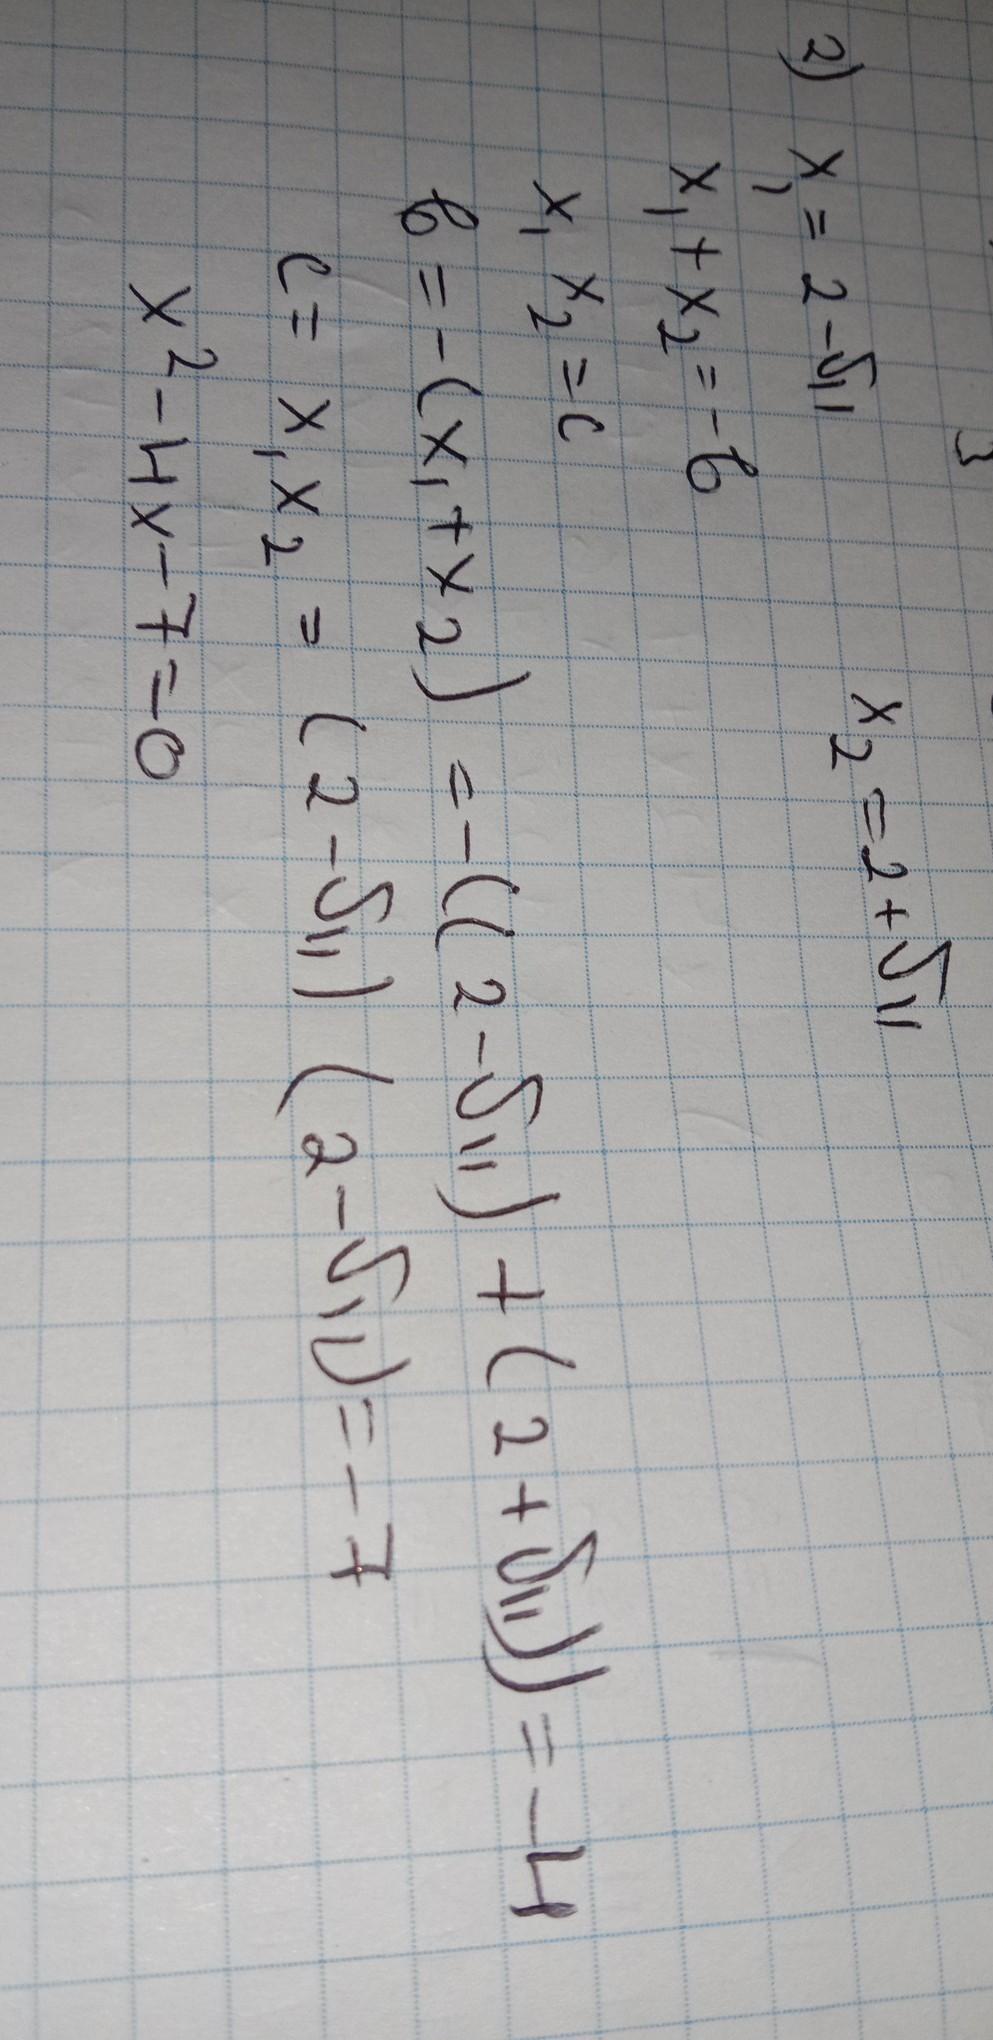 2) x₁ = 2 - √11 x₂ = 2 + √11
x₁ + x₂ = -b
x₁ x₂ = c
b = -(x₁ + x₂) = -((2 - √11) + (2 + √11)) = -4
c = x₁ x₂ = (2 - √11) (2 - √11) = -7
x² - 4x - 7 = 0